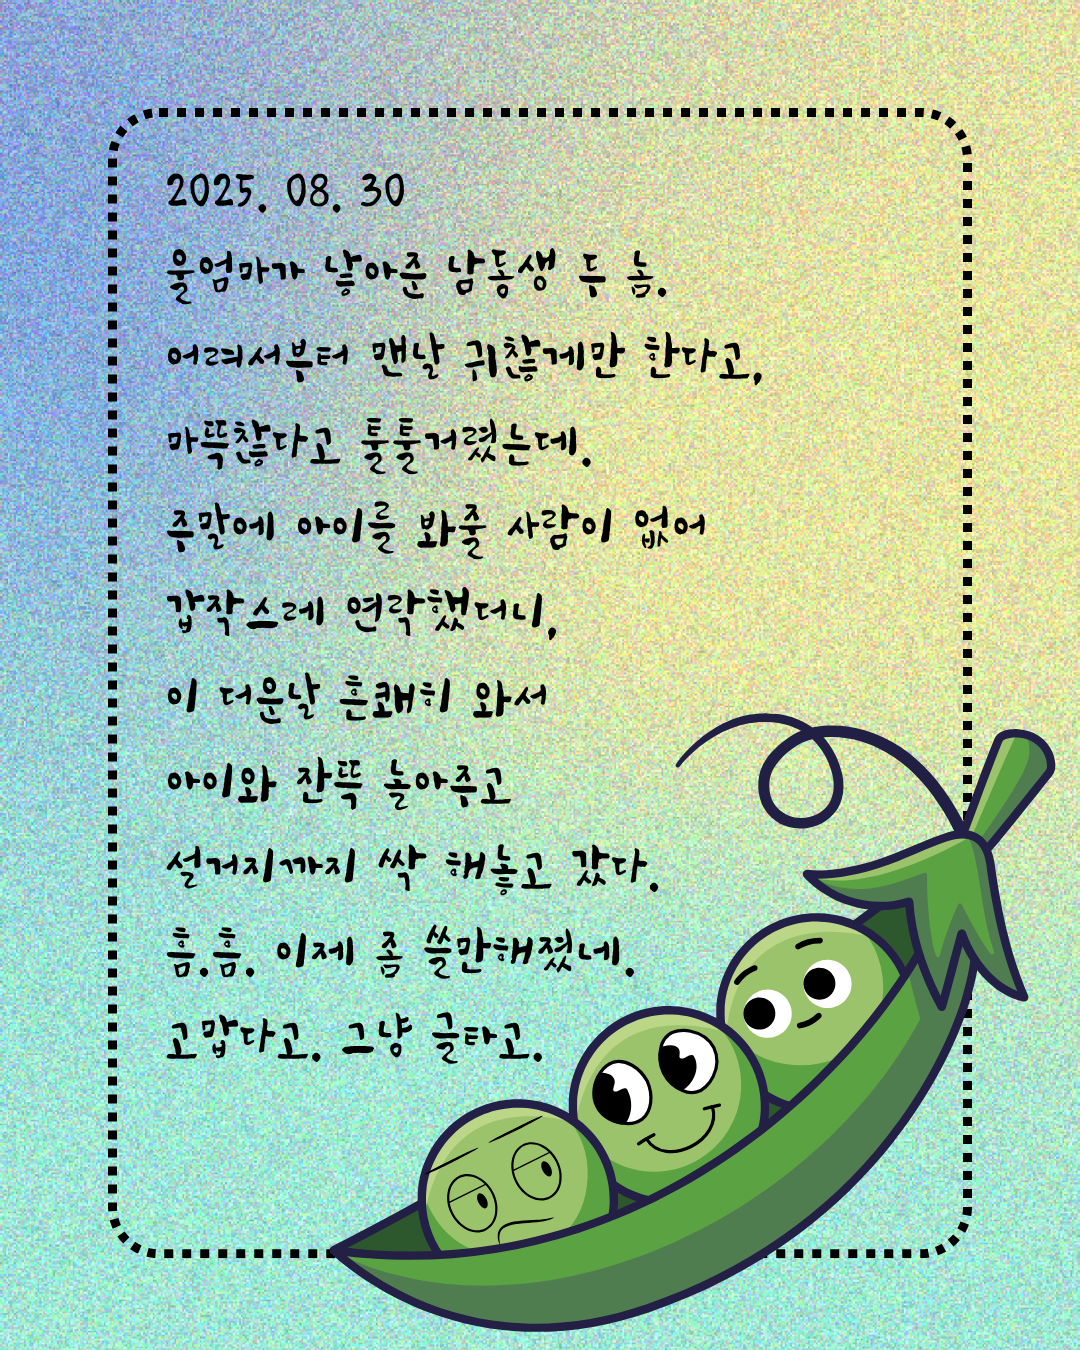 2025. 08. 30
울엄마가 낳아준 남동생 두 놈.
어려서부터 맨날 귀찮게만 한다고,
마뜩찮다고 툴툴거렸는데.
주말에 아이를 봐줄 사람이 없어
갑작스레 연락했더니,
이 더운날 흔쾌히 와서
아이와 잔뜩 놀아주고
설거지까지 싹 해놓고 갔다.
흠.흠. 이제 좀 쓸만해졌네.
고맙다고. 그냥 글타고.